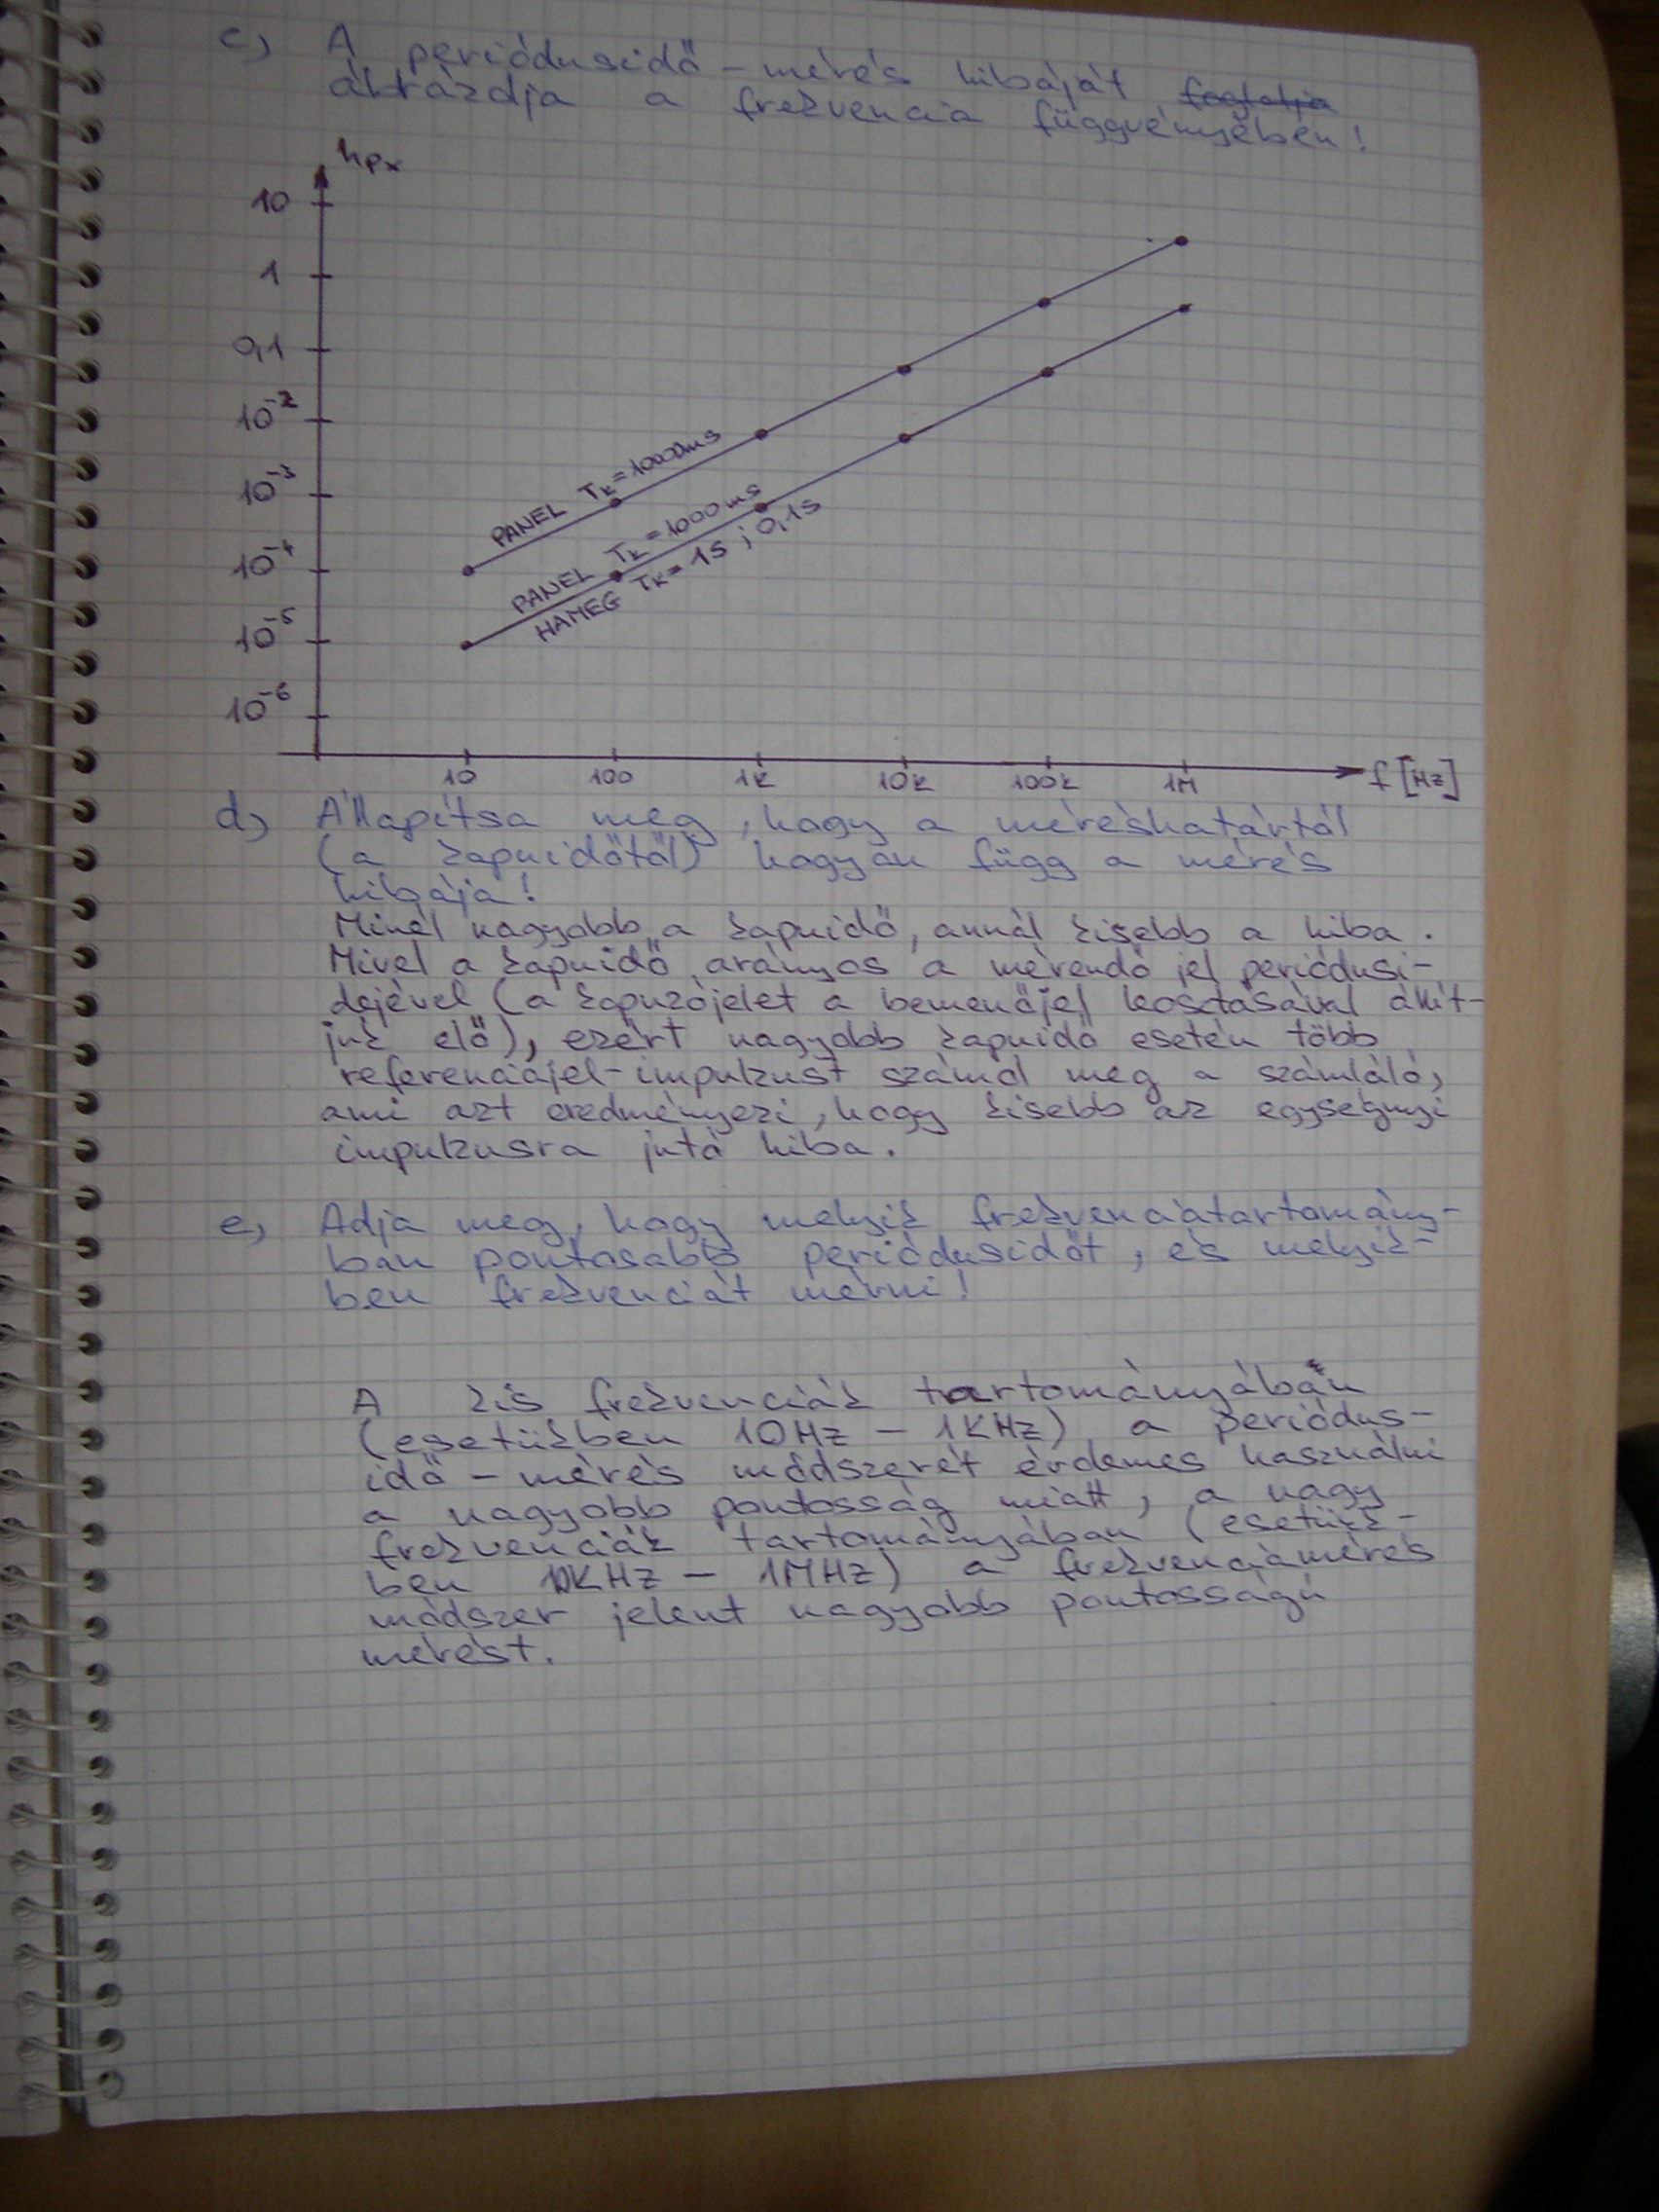 c, A periódusidő - mérés hibáját foglalja
ábrázolja a frekvencia függvényében!
hpx
10
1
0,1
10^-2
10^-3
10^-4
10^-5
10^-6
PANEL Tk = 10000ms
PANEL Tk = 1000 ms
HAMEG Tk = 1s ; 0,1s
10 100 1k 10k 100k 1M f [Hz]
d, Állapítsa meg, hogy a méréshatártól
(a kapuidőtől) hogyan függ a mérés
hibája!
Minél nagyobb a kapuidő, annál kisebb a hiba.
Mivel a kapuidő arányos a mérendő jel periódusi-
dejével (a kapuzójelet a bemenőjel leosztásával állít-
juk elő), ezért nagyobb kapuidő esetén több
referenciajel-impulzust számol meg a számláló,
ami azt eredményezi, hogy kisebb az egységnyi
impulzusra jutó hiba.
e, Adja meg, hogy melyik frekvenciatartomány-
ban pontosabb periódusidőt, és melyik-
ben frekvenciát mérni!
A kis frekvenciák tartományában
(esetükben 10Hz - 1KHz) a periódus-
idő - mérés módszerét érdemes használni
a nagyobb pontosság miatt, a nagy
frekvenciák tartományában (esetünk-
ben 10KHz - 1MHz) a frekvenciamérés
módszer jelent nagyobb pontosságú
mérést.